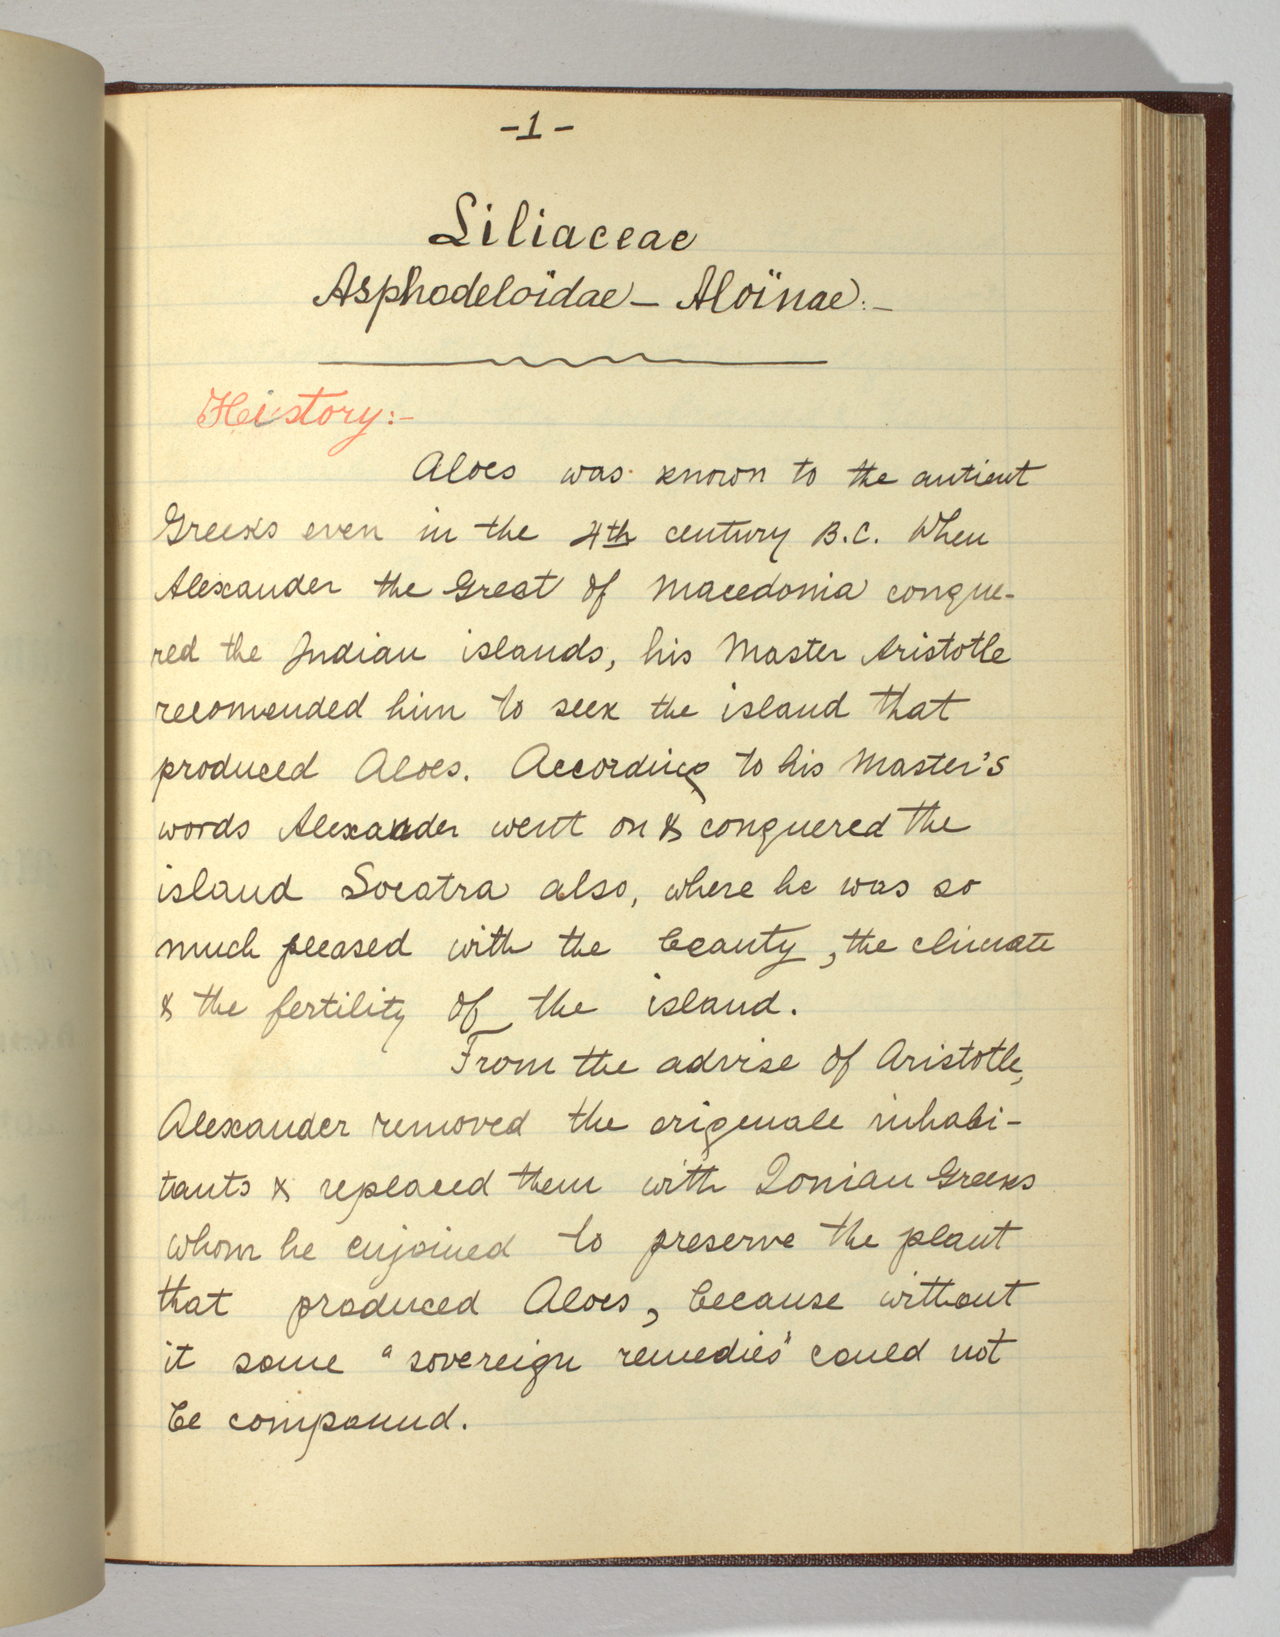 -1-
Liliaceae
Asphodeloïdae - Aloïnae:-
History:-
Aloes was known to the antient
Greeks even in the 4th century B.C. When
Alexander the Great of Macedonia conque-
red the Indian islands, his Master Aristotle
recomended him to seek the island that
produced Aloes. According to his Master's
words Alexander went on & conquered the
island Socotra also, where he was so
much pleased with the beauty, the climate
& the fertility of the island.
From the advise of Aristotle,
Alexander removed the origenale inhabi-
tants & replaced them with Ionian Greeks
whom he enjoined to preserve the plant
that produced Aloes, because without
it some "sovereign remedies" could not
be compound.